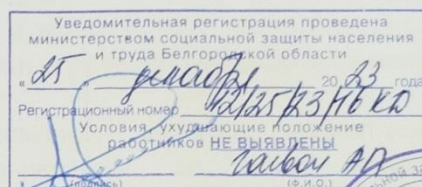 Уведомительная регистрация проведена
министерством социальной защиты населения
и труда Белгородской области
«25» декабря 2023 года
Регистрационный номер 12/25/23/116 КД
Условия, ухудшающие положение
работников НЕ ВЫЯВЛЕНЫ
(подпись) (Ф.И.О.)